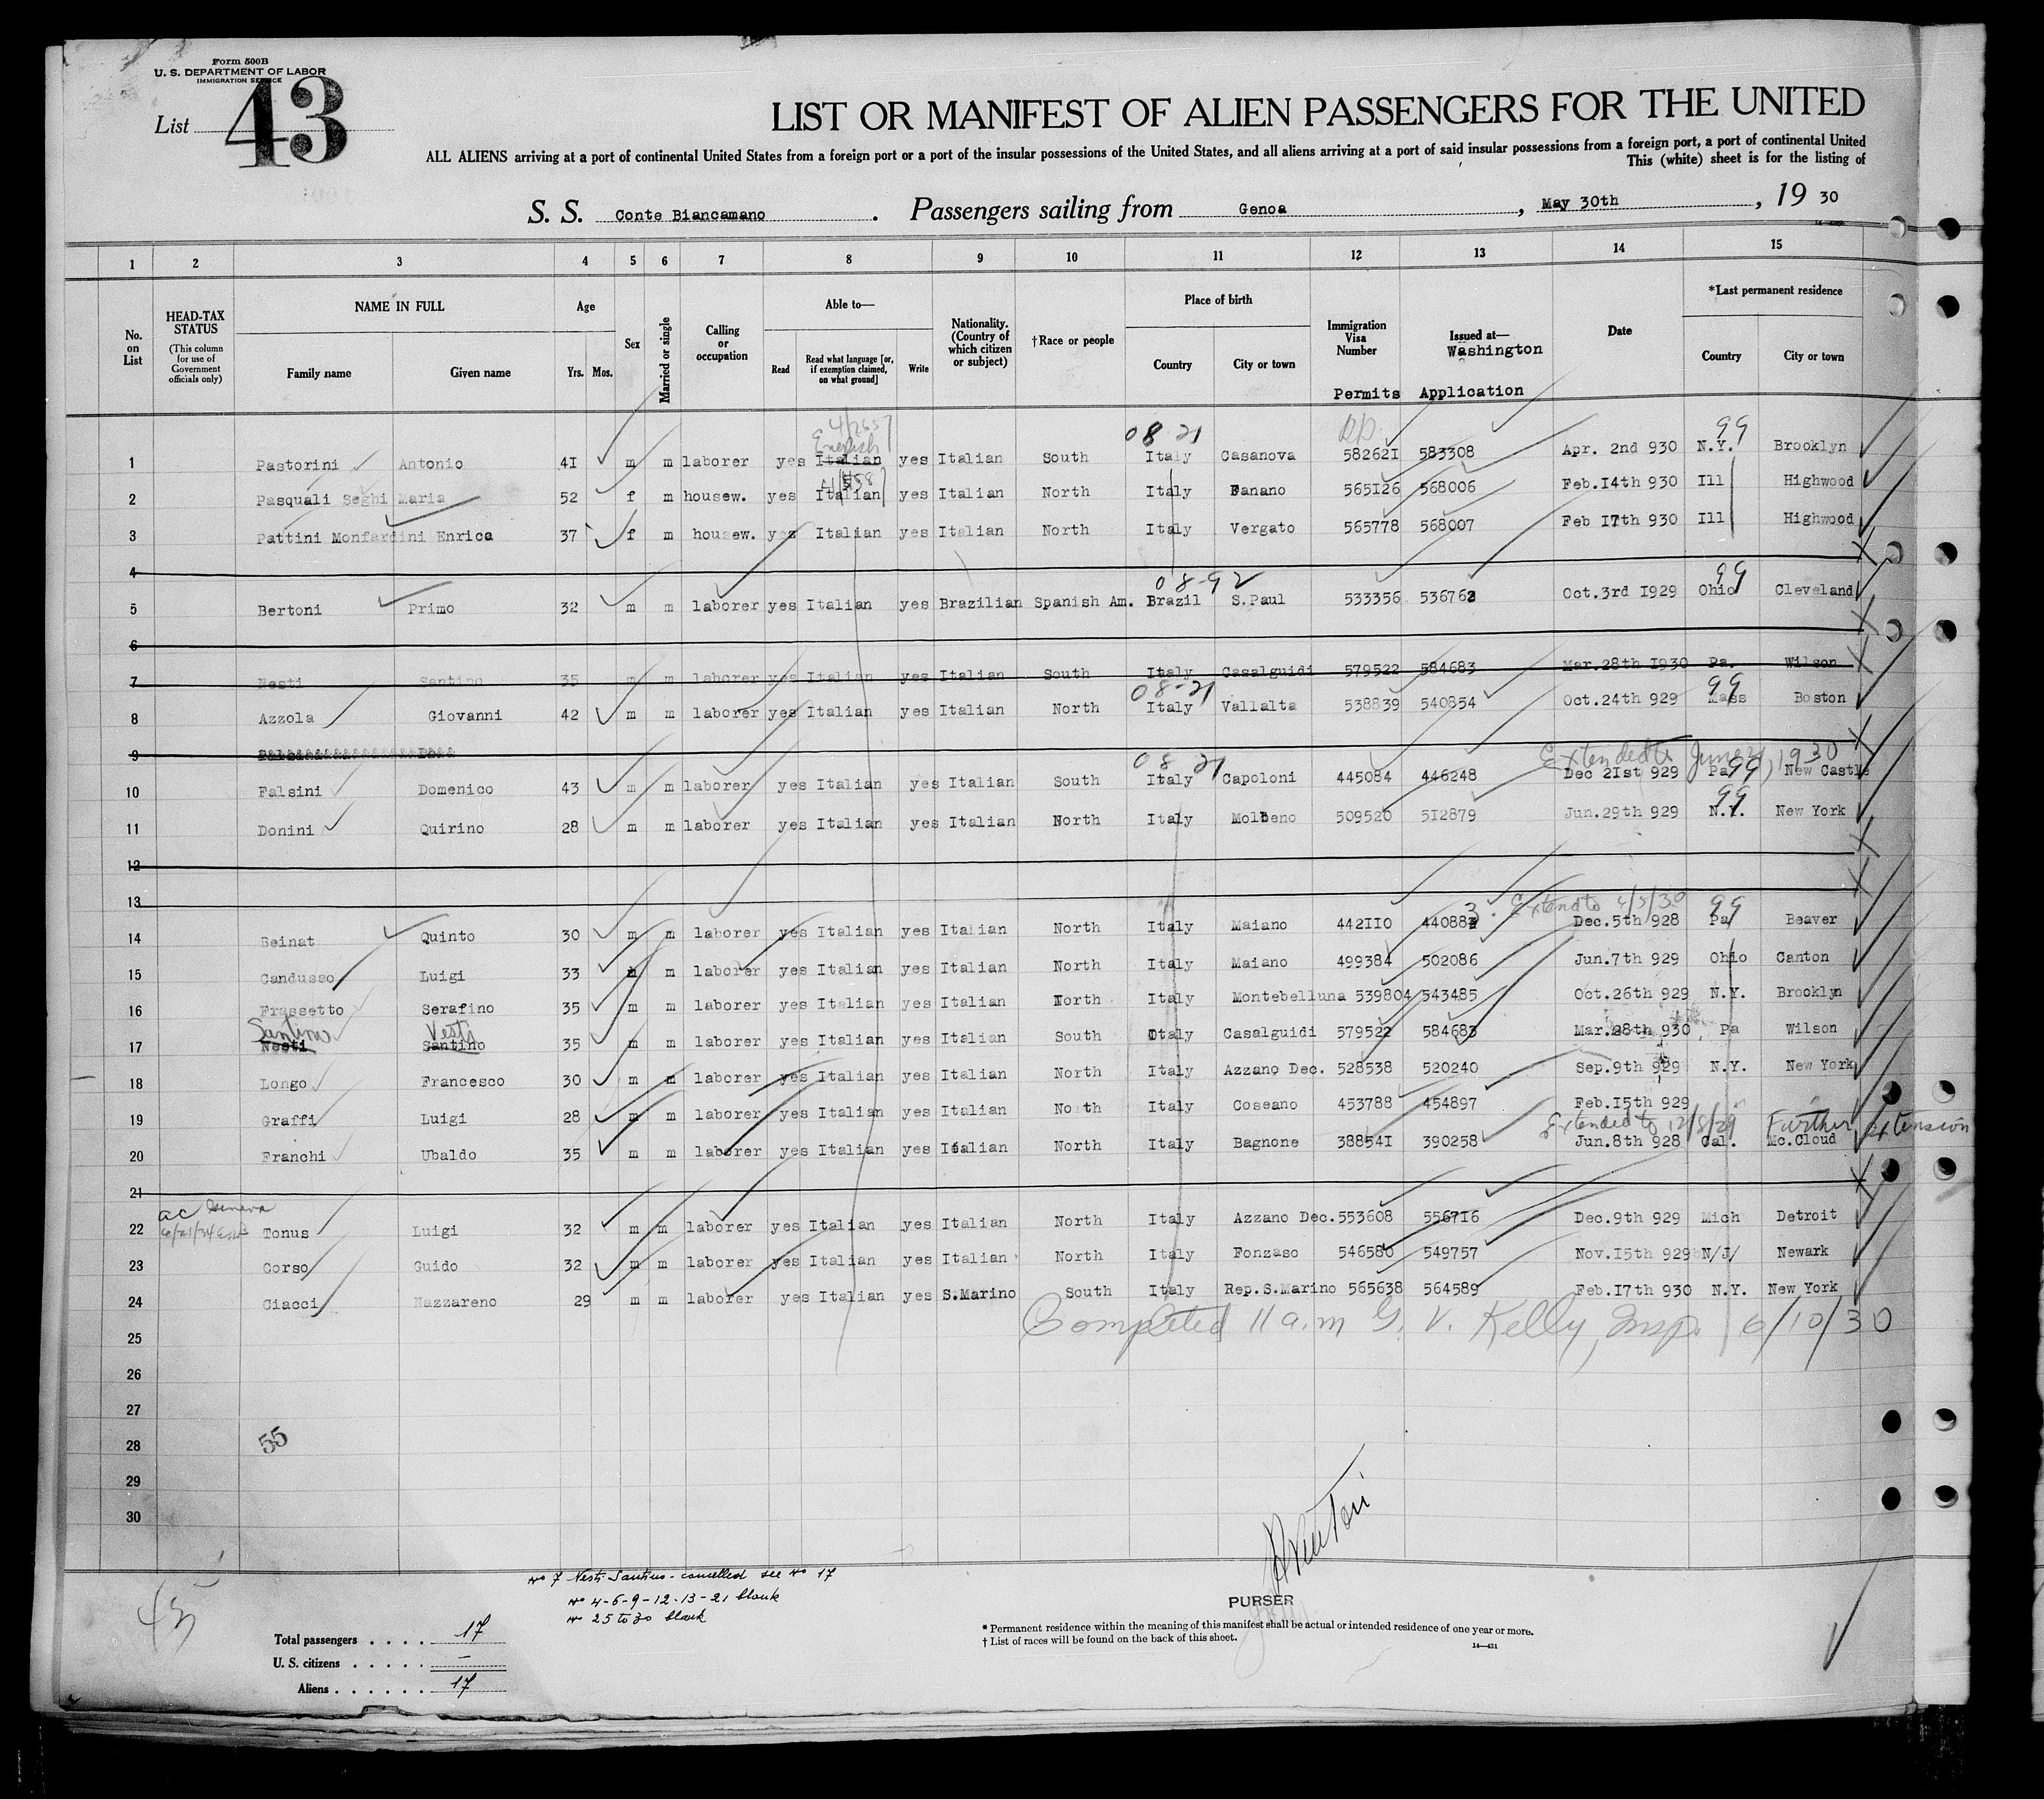 Form 500B
U. S. DEPARTMENT OF LABOR
IMMIGRATION SERVICE
List 43
LIST OR MANIFEST OF ALIEN PASSENGERS FOR THE UNITED
ALL ALIENS arriving at a port of continental United States from a foreign port or a port of the insular possessions of the United States, and all aliens arriving at a port of said insular possessions from a foreign port, a port of continental United
This (white) sheet is for the listing of
S. S. Conte Biancamano . Passengers sailing from Genoa , May 30th , 19 30
1 2 3 4 5 6 7 8 9 10 11 12 13 14 15
No. on List HEAD-TAX STATUS (This column for use of Government officials only) NAME IN FULL Family name Given name Age Yrs. Mos. Sex Married or single Calling or occupation Able to— Read Read what language [or, if exemption claimed, on what ground] Write Nationality. (Country of which citizen or subject) †Race or people Place of birth Country City or town Immigration Visa Number Permits Issued at— Washington Application Date *Last permanent residence Country City or town
English 08 21 99
1 Pastorini Antonio 41 m m laborer yes Italian yes Italian South Italy Casanova 582621 583308 Apr. 2nd 930 N.Y. Brooklyn
2 Pasquali Seghi Maria 52 f m housew. yes Italian yes Italian North Italy Fanano 565126 568006 Feb.14th 930 Ill Highwood
3 Pattini Monfardini Enrica 37 f m housew. yes Italian yes Italian North Italy Vergato 565778 568007 Feb 17th 930 Ill Highwood
4
08-92 99
5 Bertoni Primo 32 m m laborer yes Italian yes Brazilian Spanish Am. Brazil S.Paul 533356 536762 Oct.3rd 1929 Ohio Cleveland
6
7 Nesti Santino 35 m m laborer yes Italian yes Italian South Italy Casalguidi 579522 584683 Mar.28th 1930 Pa. Wilson
08-21 99
8 Azzola Giovanni 42 m m laborer yes Italian yes Italian North Italy Vallalta 538839 540854 Oct.24th 929 Mass Boston
9
08 21 Extended to June 21, 1930
10 Falsini Domenico 43 m m laborer yes Italian yes Italian South Italy Capoloni 445084 446248 Dec 21st 929 Pa 99 New Castle
99
11 Donini Quirino 28 m m laborer yes Italian yes Italian North Italy Molbeno 509520 512879 Jun.29th 929 N.Y. New York
12
13
Extend to 6/5/30 99
14 Beinat Quinto 30 m m laborer yes Italian yes Italian North Italy Maiano 442110 440883 Dec.5th 928 Pa Beaver
15 Candusso Luigi 33 m m laborer yes Italian yes Italian North Italy Maiano 499384 502086 Jun.7th 929 Ohio Canton
16 Frassetto Serafino 35 m m laborer yes Italian yes Italian North Italy Montebelluna 539804 543485 Oct.26th 929 N.Y. Brooklyn
Santino Nesti
17 Nesti Santino 35 m m laborer yes Italian yes Italian South Italy Casalguidi 579522 584683 Mar.28th 930 Pa Wilson
18 Longo Francesco 30 m m laborer yes Italian yes Italian North Italy Azzano Dec. 528538 520240 Sep.9th 929 N.Y. New York
19 Graffi Luigi 28 m m laborer yes Italian yes Italian North Italy Coseano 453788 454897 Feb.15th 929
Extended to 12/8/29 Further extension
20 Franchi Ubaldo 35 m m laborer yes Italian yes Italian North Italy Bagnone 388541 390258 Jun.8th 928 Cal. Mc.Cloud
21
ac Geneva
22 Tonus Luigi 32 m m laborer yes Italian yes Italian North Italy Azzano Dec. 553608 556716 Dec.9th 929 Mich Detroit
23 Corso Guido 32 m m laborer yes Italian yes Italian North Italy Fonzaso 546580 549757 Nov.15th 929 N/J/ Newark
24 Ciacci Nazzareno 29 m m laborer yes Italian yes S.Marino South Italy Rep.S.Marino 565638 564589 Feb.17th 930 N.Y. New York
Completed 11 a.m G. V. Kelly, Insp. 6/10/30
25
26
27
28 55
29
30
No 7 Nesti Santino - cancelled see No 17
No 4-6-9-12-13-21 blank
No 25 to 30 blank
45
PURSER
Total passengers . . . . 17
U. S. citizens . . . . . —
Aliens . . . . . . 17
* Permanent residence within the meaning of this manifest shall be actual or intended residence of one year or more.
† List of races will be found on the back of this sheet.
14—431